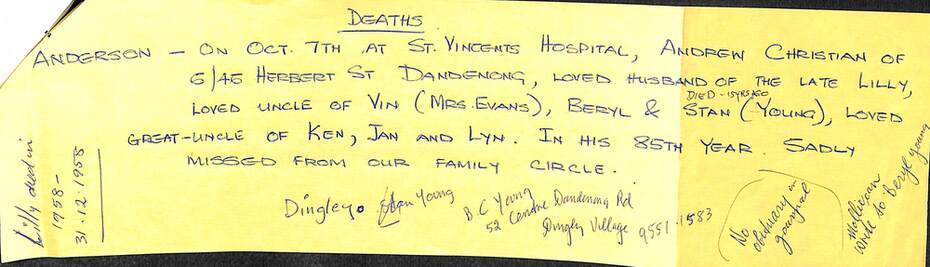 DEATHS
ANDERSON – ON OCT. 7TH AT ST. VINCENTS HOSPITAL, ANDREW CHRISTIAN OF
6/45 HERBERT ST DANDENONG, LOVED HUSBAND OF THE LATE LILLY,
DIED - 15 YRS AGO
LOVED UNCLE OF VIN (MRS. EVANS), BERYL & STAN (YOUNG), LOVED
GREAT-UNCLE OF KEN, JAN AND LYN. IN HIS 85TH YEAR. SADLY
MISSED FROM OUR FAMILY CIRCLE.
Lilly died in
1958 –
31.12.1958
Dingley. Stan Young
B.C Young
52 Centre Dandenong Rd
Dingly Village 9551.1583
No
obituary in
write to Beryl Young